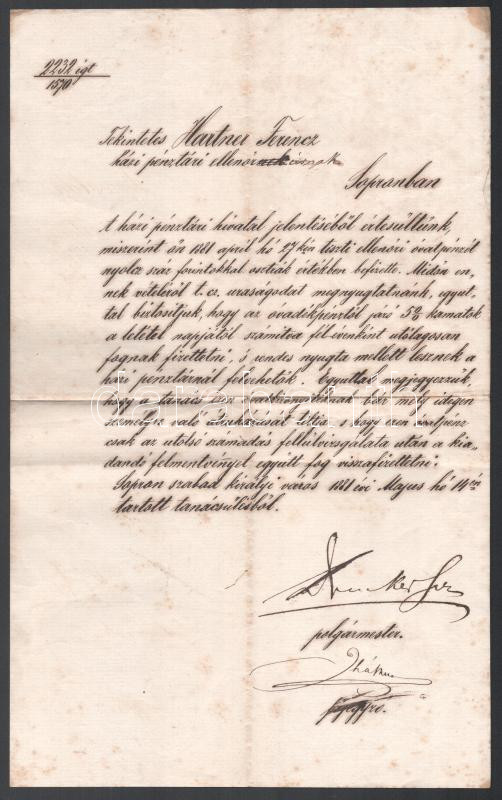 2232 igt
1570
Tekintetes Hartner Ferencz
házi pénztári ellenőrnek
Sopronban
A házi pénztári hivatal jelentéséből értesültünk,
miszerint ön 1881 april hó 27kén tiszti ellenőri óvatpénzét
nyolcz száz forintokkal osztrák értékben befizette. Midőn en-
nek vételéről t. cz. uraságodat megnyugtatnánk, egyut-
tal biztosítjuk, hogy az ovadékpénztől járó 5% kamatok
a letétel napjától számítva fél évenként utólagosan
fognak fizettetni, s rendes nyugta mellett lesznek a
házi pénztárnál felvehetők. Egyuttal megjegyezzük,
hogy a tanács ezen bár mely idegen
személyre való átruházását tiltja, s hogy ezen óvatpénz
csak az utolsó számadás felülvizsgálata után a kia-
dandó felmentvénynyel együtt fog visszafizettetni.
Sopron szabad királyi város 1881 évi Majus hó 14én
tartott tanácsüléséből.
polgármester.
darabanth